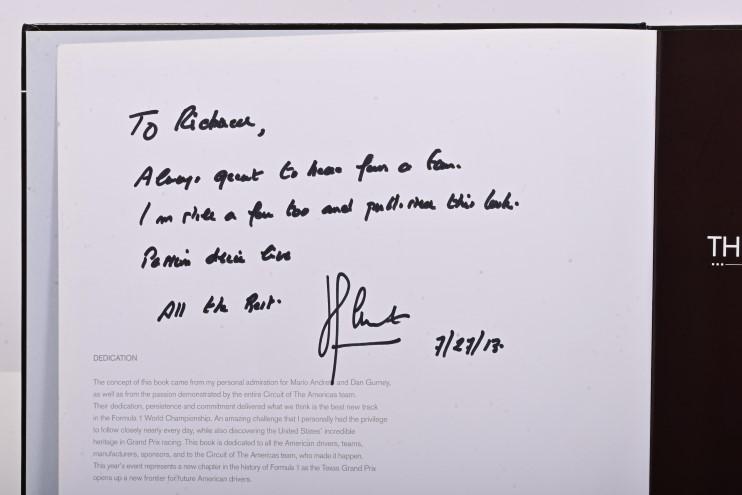 To Richard,
Always great to hear from a fan.
I'm still a fan too and published this book.
Passion drive live
All the Best.
7/27/13.
DEDICATION
The concept of this book came from my personal admiration for Mario Andretti and Dan Gurney,
as well as from the passion demonstrated by the entire Circuit of The Americas team.
Their dedication, persistence and commitment delivered what we think is the best new track
in the Formula 1 World Championship. An amazing challenge that I personally had the privilege
to follow closely nearly every day, while also discovering the United States' incredible
heritage in Grand Prix racing. This book is dedicated to all the American drivers, teams,
manufacturers, sponsors, and to the Circuit of The Americas team, who made it happen.
This year's event represents a new chapter in the history of Formula 1 as the Texas Grand Prix
opens up a new frontier for future American drivers.
TH